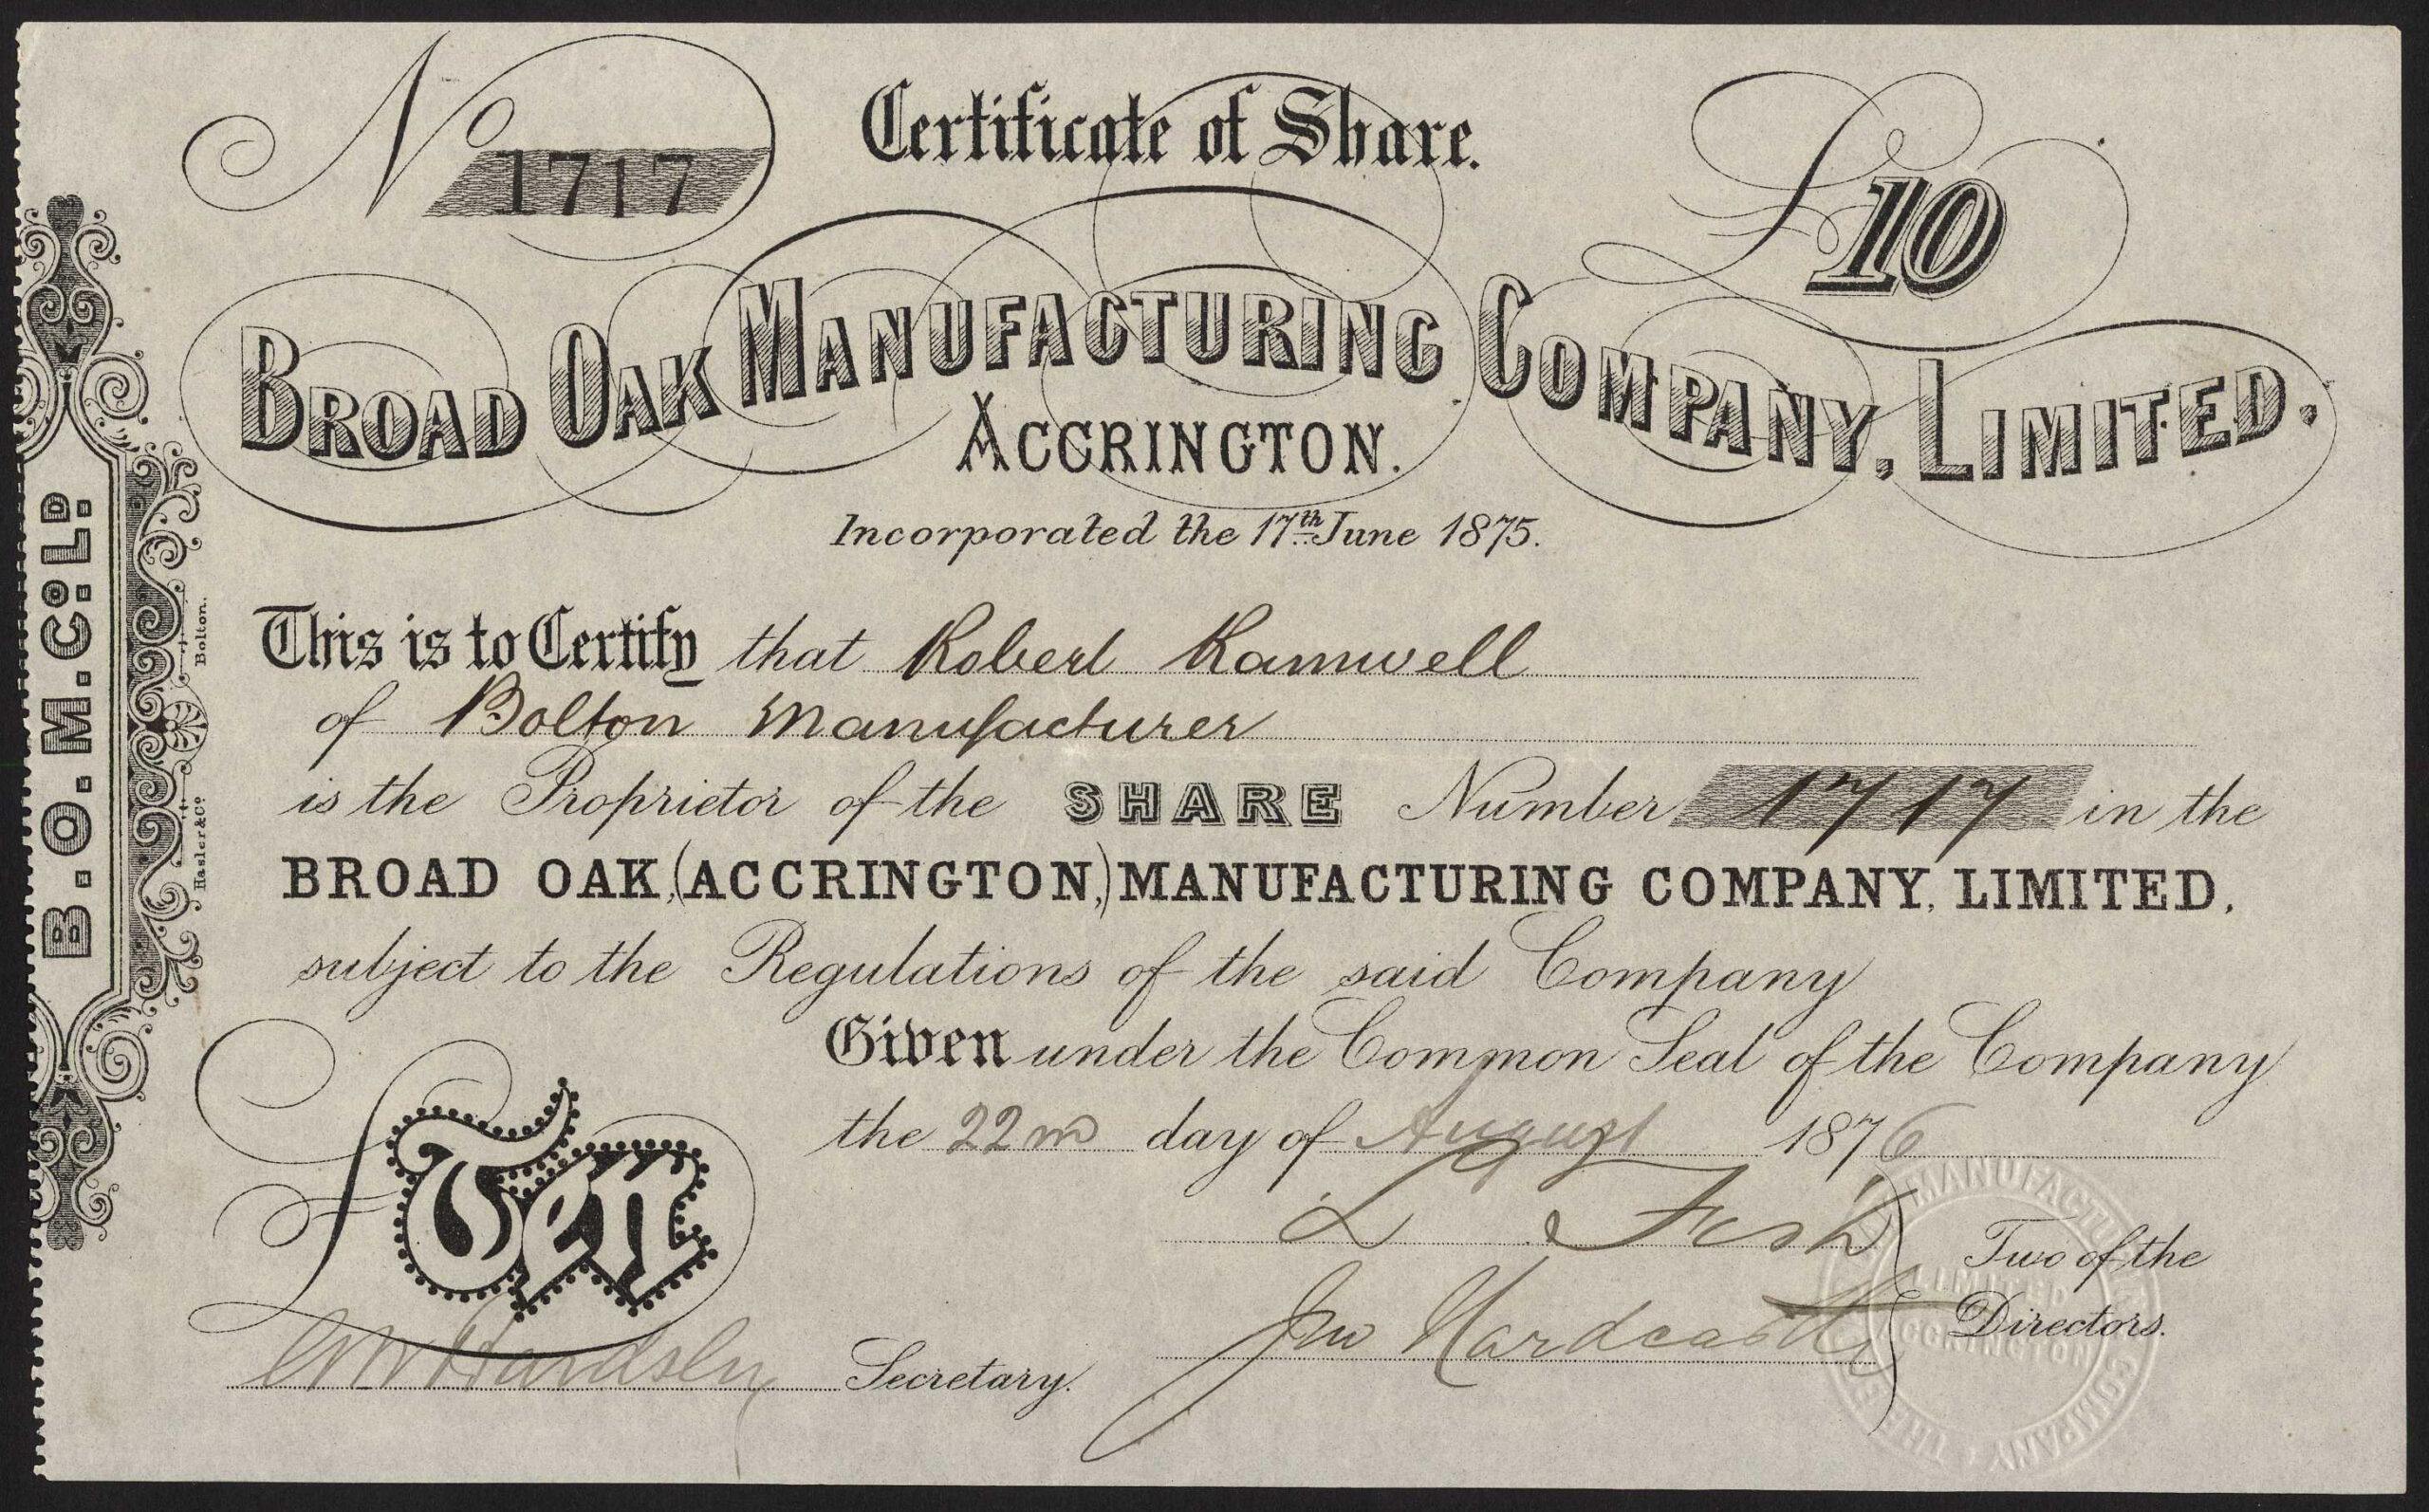 No 1717
Certificate of Share.
£10
BROAD OAK MANUFACTURING COMPANY, LIMITED.
ACCRINGTON.
Incorporated the 17th June 1875.
This is to Certify that Robert Ramwell
of Bolton Manufacturer
is the Proprietor of the SHARE Number 1717 in the
BROAD OAK, (ACCRINGTON,) MANUFACTURING COMPANY, LIMITED,
subject to the Regulations of the said Company
Given under the Common Seal of the Company
the 22nd day of August 1876
£Ten
L Fish
Jno Hardcastle
Two of the
Directors.
Secretary.
B.O.M.Co. LD.
Hasler & Co. Bolton.
MANUFACTURING COMPANY
LIMITED
ACCRINGTON